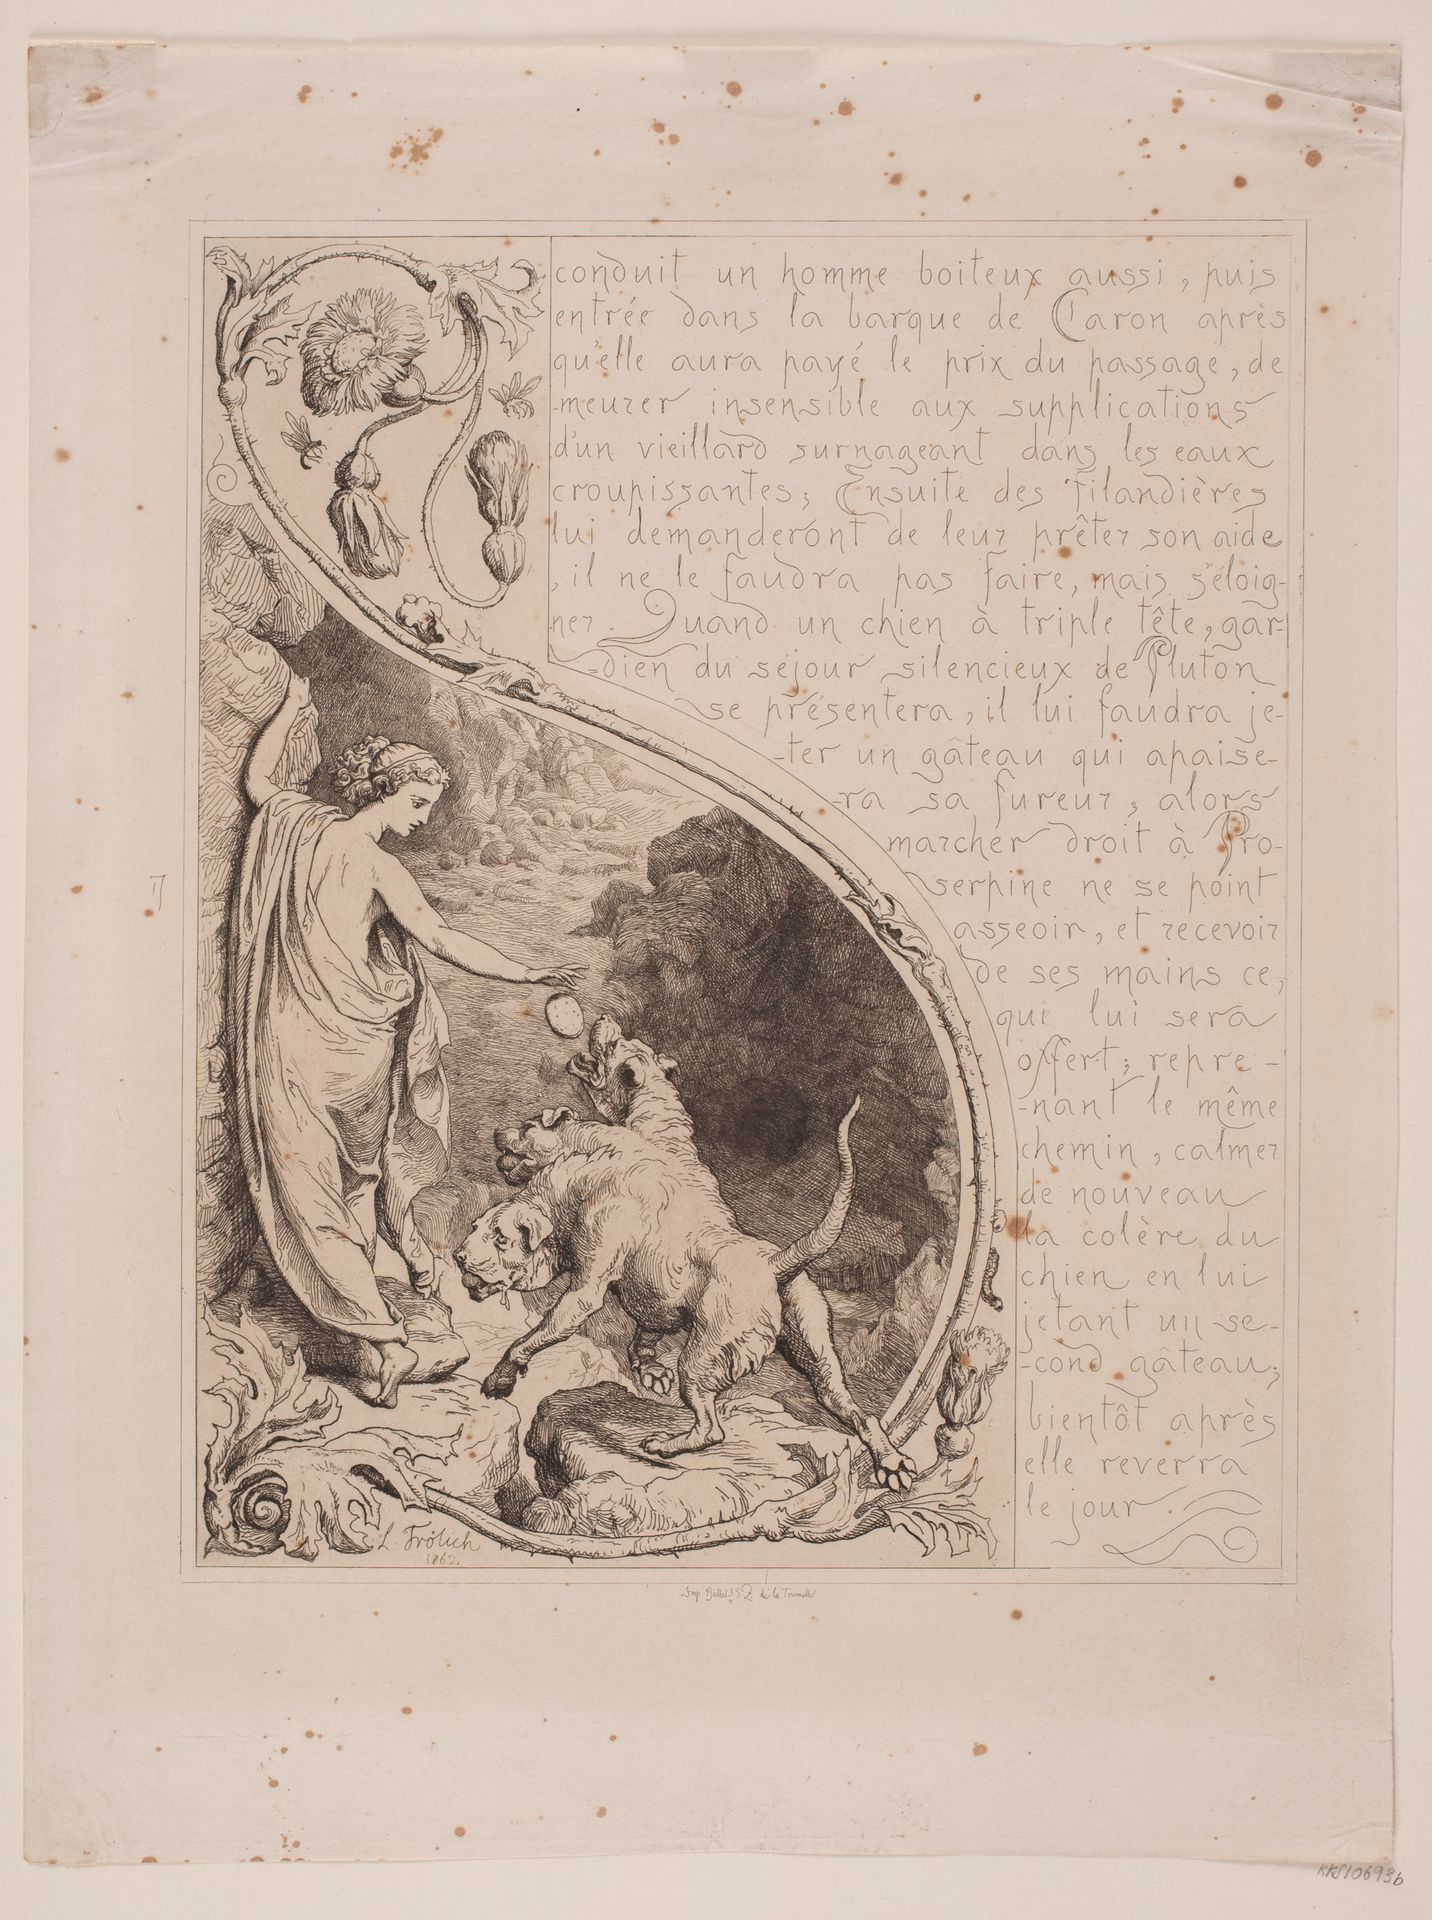 conduit un homme boiteux aussi, puis
entrée dans la barque de Caron après
qu'elle aura payé le prix du passage, de
-meurer insensible aux supplications
d'un vieillard surnageant dans les eaux
croupissantes; Ensuite des filandières
lui demanderont de leur prêter son aide
, il ne le faudra pas faire, mais s'éloig-
ner. Quand un chien à triple tête, gar-
-dien du séjour silencieux de Pluton
se présentera, il lui faudra je-
-ter un gâteau qui apaise-
-ra sa fureur, alors
marcher droit à Pro-
serpine ne se point
asseoir, et recevoir
de ses mains ce,
qui lui sera
offert; repre-
-nant le même
chemin, calmer
de nouveau
la colère du
chien en lui
jetant un se-
-cond gâteau;
bientôt après
elle reverra
le jour.
L. Frölich
1862.
Imp de la Tournelle
KKS10693b